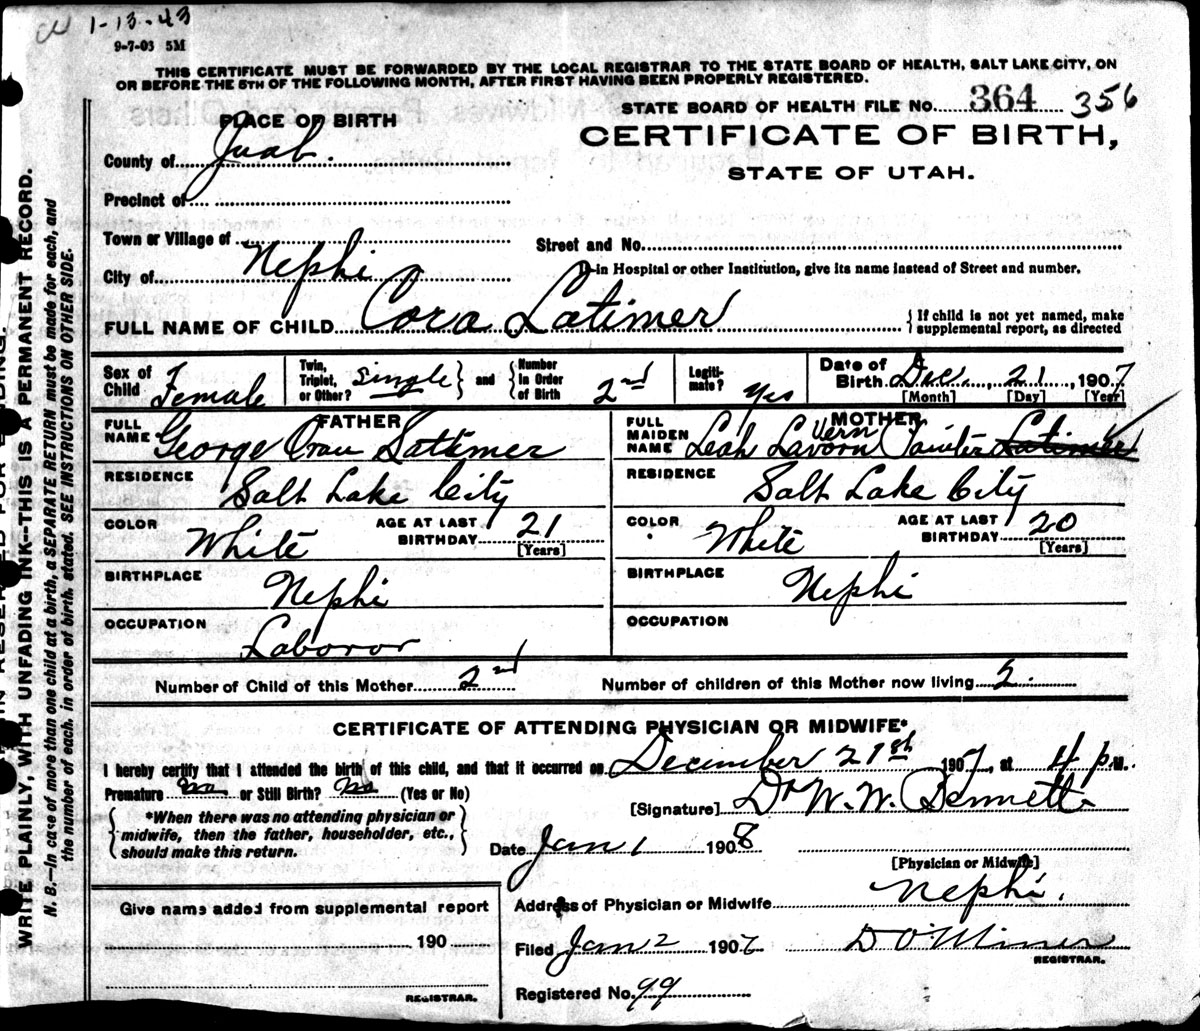 1-13-43
9-7-03 5M
THIS CERTIFICATE MUST BE FORWARDED BY THE LOCAL REGISTRAR TO THE STATE BOARD OF HEALTH, SALT LAKE CITY, ON
OR BEFORE THE 5TH OF THE FOLLOWING MONTH, AFTER FIRST HAVING BEEN PROPERLY REGISTERED.
STATE BOARD OF HEALTH FILE No. 364 356
PLACE OF BIRTH
CERTIFICATE OF BIRTH,
County of Juab.
STATE OF UTAH.
Precinct of
Town or Village of
Street and No.
City of Nephi
in Hospital or other Institution, give its name instead of Street and number.
FULL NAME OF CHILD Cora Latimer
{If child is not yet named, make
supplemental report, as directed
Sex of Child Female
Twin, Triplet, or Other? Single } and { Number In Order of Birth 2nd
Legiti-mate? Yes
Date of Birth Dec. 21, 1907
[Month] [Day] [Year]
FATHER
FULL NAME George Latimer
MOTHER
FULL MAIDEN NAME Leah Lavern Painter Latimer
RESIDENCE Salt Lake City
RESIDENCE Salt Lake City
COLOR White
AGE AT LAST BIRTHDAY 21
[Years]
COLOR White
AGE AT LAST BIRTHDAY 20
[Years]
BIRTHPLACE Nephi
BIRTHPLACE Nephi
OCCUPATION Laboror
OCCUPATION
Number of Child of this Mother 2nd
Number of children of this Mother now living 2.
CERTIFICATE OF ATTENDING PHYSICIAN OR MIDWIFE*
I hereby certify that I attended the birth of this child, and that it occurred on December 21st 1907, at 4 p.M.
Premature no or Still Birth? no (Yes or No)
[Signature] Dr W. W. Bennett
{ *When there was no attending physician or
midwife, then the father, householder, etc.,
should make this return. }
Date Jan 1 1908
[Physician or Midwife]
Address of Physician or Midwife Nephi.
Give name added from supplemental report
190
REGISTRAR.
Filed Jan 2 190
Miner
REGISTRAR.
Registered No. 99
WRITE PLAINLY, WITH UNFADING INK—THIS IS A PERMANENT RECORD.
N. B.—In case of more than one child at a birth, a SEPARATE RETURN must be made for each, and
the number of each, in order of birth, stated. SEE INSTRUCTIONS ON OTHER SIDE.